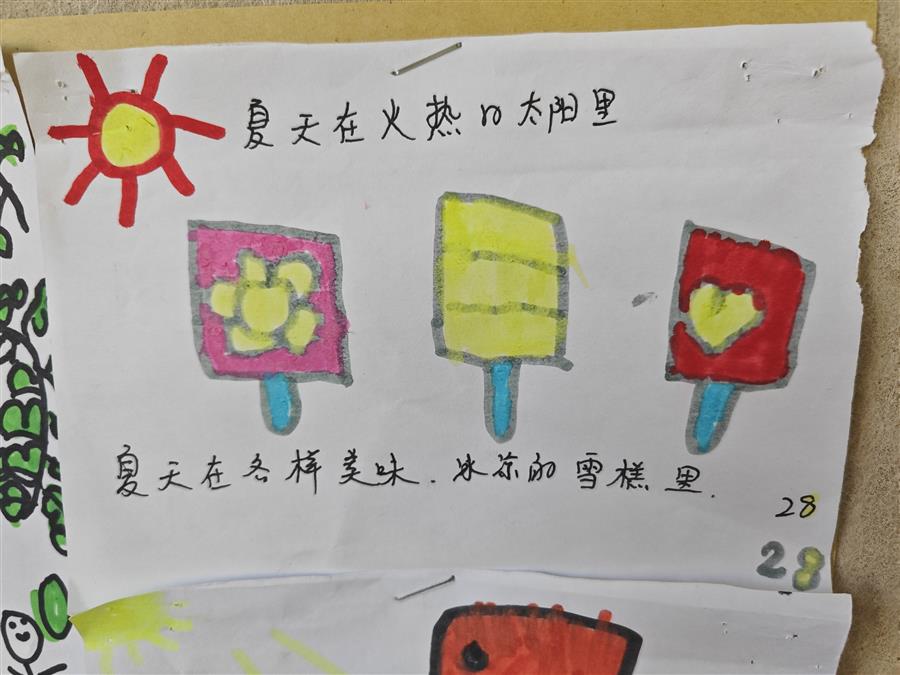 夏天在火热的太阳里
夏天在各样美味.冰凉的雪糕里.
28
28